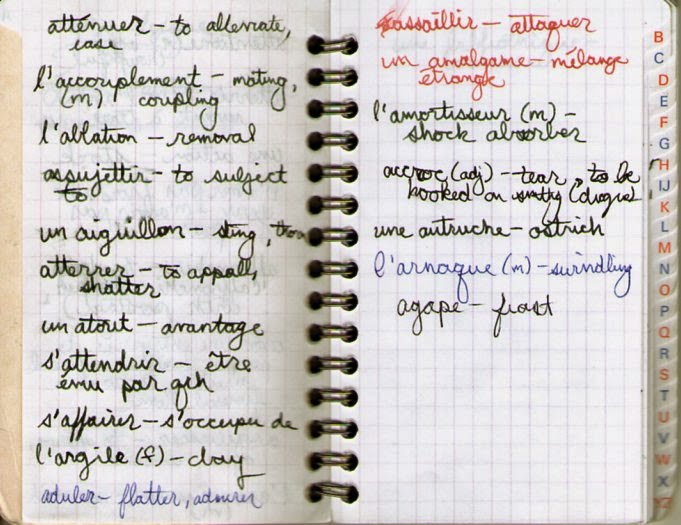 atténuer – to alleviate,
ease
l'accouplement – mating,
(m) coupling
l'ablation – removal
assujettir – to subject
to
un aiguillon – sting,
atterrer – to appall,
shatter
un atout – avantage
s'attendrir – être
ému par qch
s'affairer – s'occuper de
l'argile (f) – clay
aduler – flatter, admirer
assaillir – attaquer
un amalgame – mélange
étrange
l'amortisseur (m) –
shock absorber
accroc (adj) – tear, to be
hooked on smthg (drogue)
une autruche – ostrich
l'arnaque (m) – swindling
agape – feast
B
C
D
E
F
G
H
IJ
K
L
M
N
O
P
Q
R
S
T
U
V
W
X
YZ